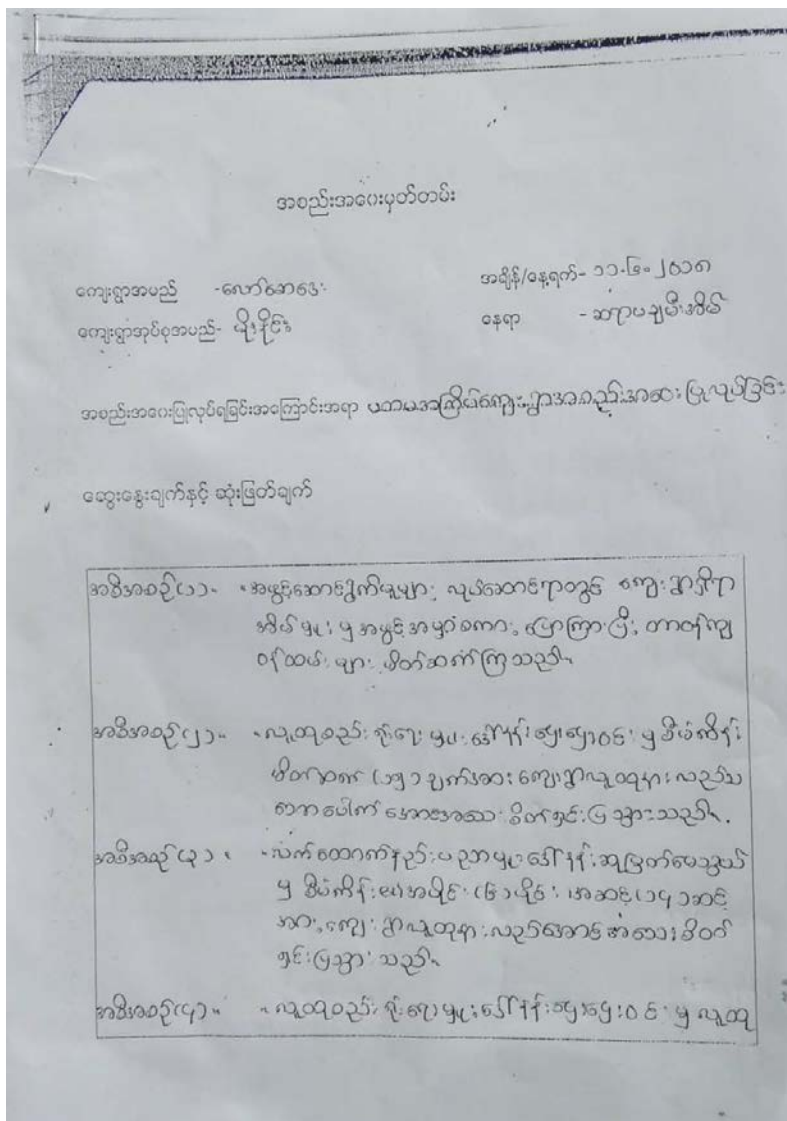 အစည်းအဝေးမှတ်တမ်း
ကျေးရွာအမည် -လော်ဆောဒေး အချိန်/နေ့ရက်- ၁၁-၆-၂၀၁၈
ကျေးရွာအုပ်စုအမည်- မိုးနိုင်း နေရာ - ဆရာမချမီးအိမ်
အစည်းအဝေးပြုလုပ်ရခြင်းအကြောင်းအရာ ပထမအကြိမ်ကျေးရွာအစည်းအဝေး ပြုလုပ်ခြင်း
ဆွေးနွေးချက်နှင့် ဆုံးဖြတ်ချက်
အစီအစဉ်(၁)။ အဖွင့်ဆောင်ရွက်မှုများ လုပ်ဆောင်ရာတွင် ကျေးရွာရှိရာ
အိမ်မှူး မှ အဖွင့်အမှာစကား ပြောကြားပြီး တာဝန်ကျ
ဝန်ထမ်းများ မိတ်ဆက်ကြသည်။
အစီအစဉ်(၂)။ -လူထုစည်းရုံးရေးမှူး ဒေါ်နန်းမွှေးမွှေးဝင်း မှ စီမံကိန်း
မိတ်ဆက် (၁၅) ချက်အား ကျေးရွာလူထုနားလည်သ
ဘောပေါက်အောင်အသေးစိတ်ရှင်းပြသွားသည်။
အစီအစဉ်(၃)။ -လက်ထောက်နည်းပညာမှူး ဒေါ်နန်းဆုမြတ်မေသွယ်
မှ စီမံကိန်း၏အပိုင်း (၆)ပိုင်း၊ အဆင့်(၁၄)ဆင့်
အား ကျေးရွာလူထုနားလည်အောင် အသေးစိတ်
ရှင်းပြသွားသည်။
အစီအစဉ်(၄)။ -လူထုစည်းရုံးရေးမှူး ဒေါ်နန်းမွှေးမွှေးဝင်း မှ လူထု